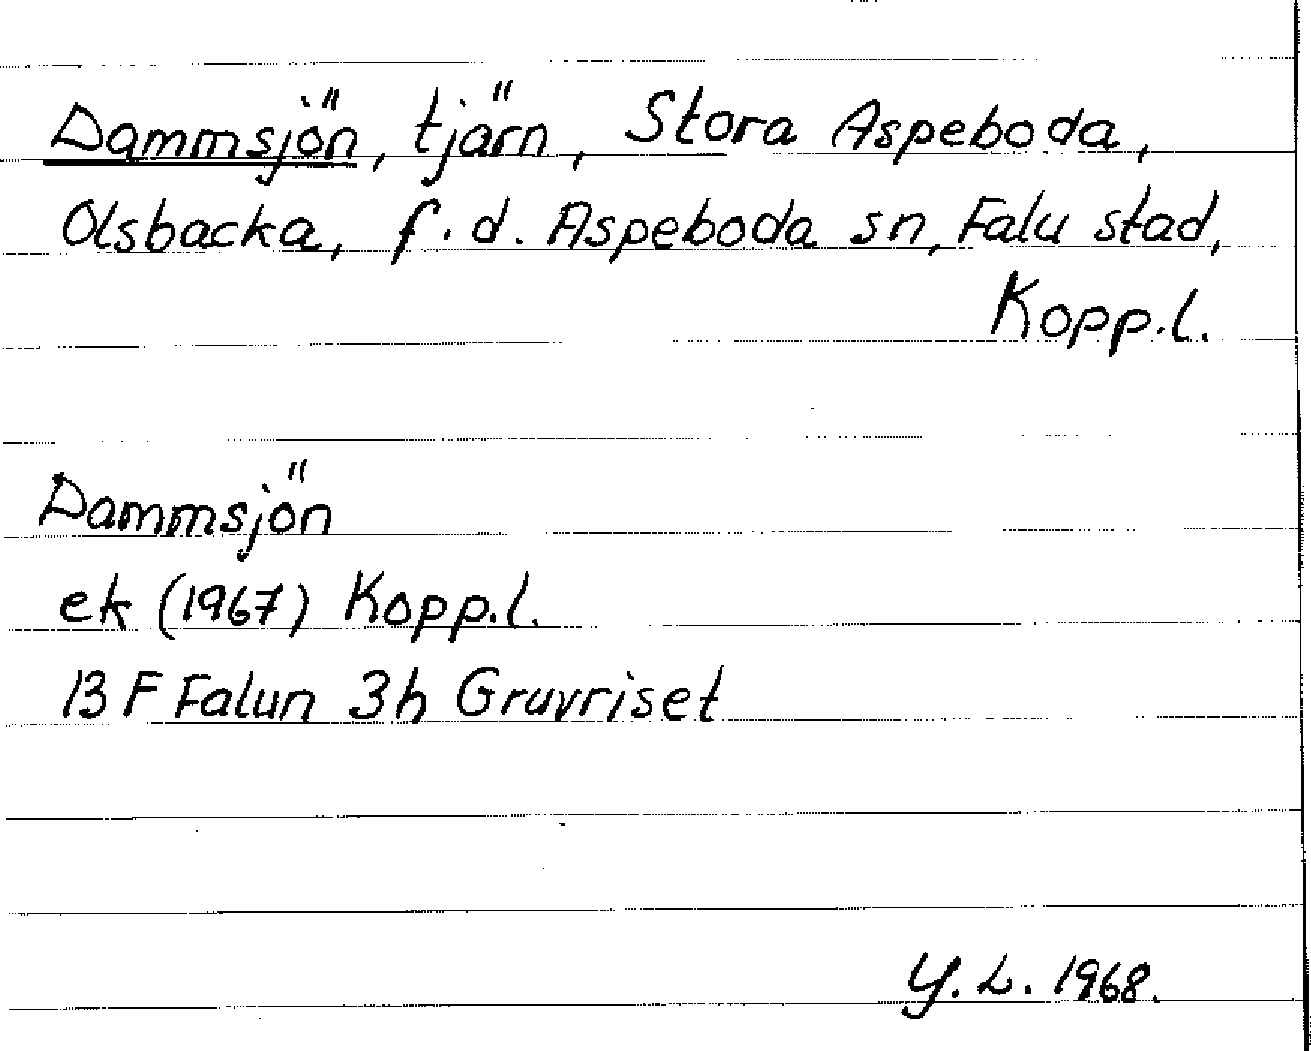 Dammsjön, tjärn, Stora Aspeboda,
Olsbacka, f.d. Aspeboda sn, Falu stad,
Kopp.l.
Dammsjön
ek (1967) Kopp.l.
13 F Falun 3h Gruvriset
Y.L. 1968.